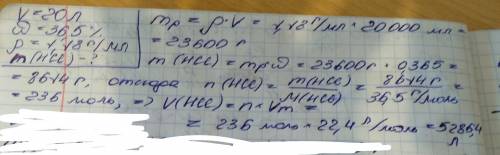 V = 20л
ω = 36,5 %
ρ = 1,18 г/мл
m(HCl) - ?
mр = ρ·V = 1,18 г/мл · 20000 мл =
= 23600 г
m(HCl) = mр·ω = 23600г · 0,365 =
= 8614 г, отсюда n(HCl) = m(HCl)/M(HCl) = 8614 г/36,5 г/моль =
= 236 моль, => V(HCl) = n · Vm =
= 236 моль · 22,4 л/моль = 5286,4 л